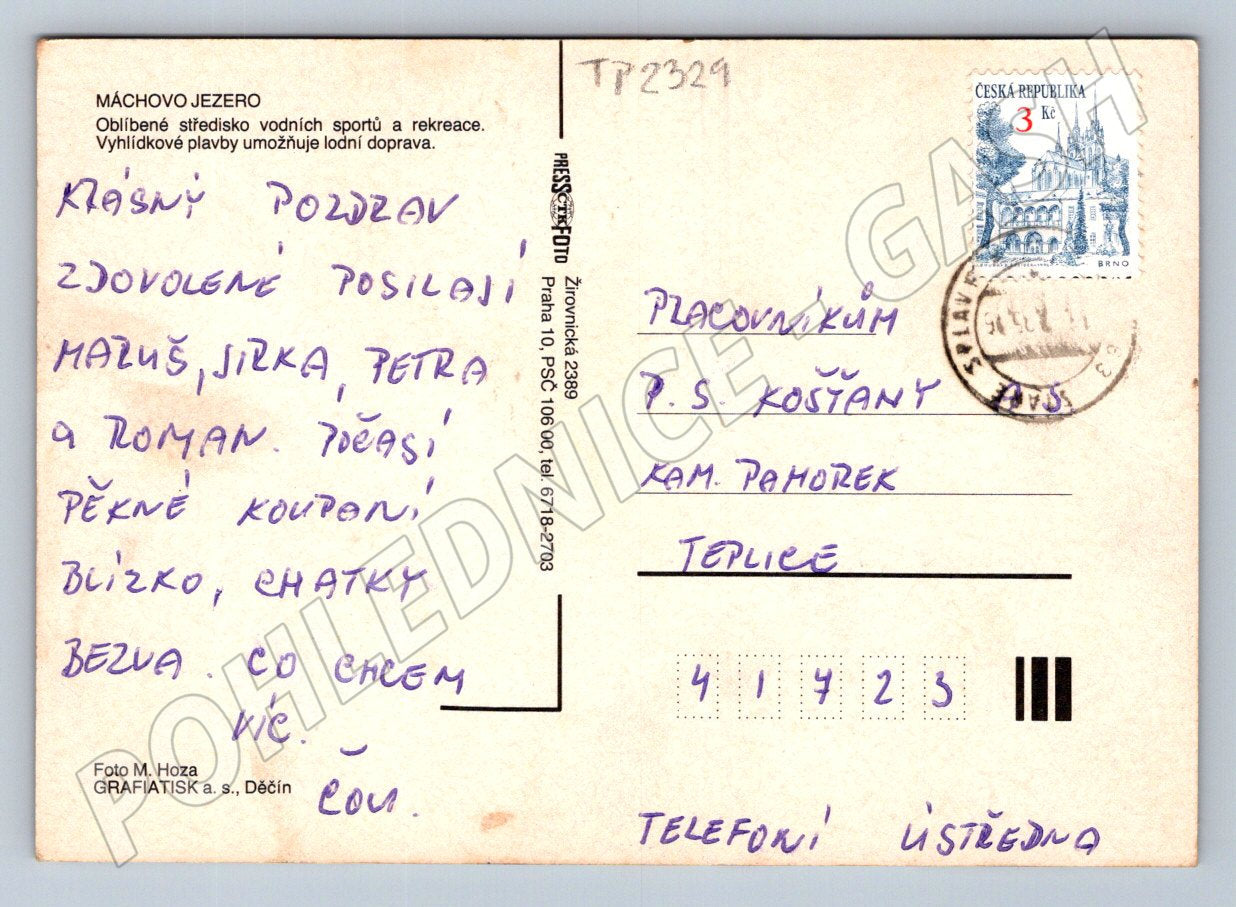 TP2329
MÁCHOVO JEZERO
Oblíbené středisko vodních sportů a rekreace.
Vyhlídkové plavby umožňuje lodní doprava.
KRÁSNÝ POZDRAV
Z DOVOLENÉ POSILAJÍ
MARUŠ, JIRKA, PETRA
a ROMAN. POČASÍ
PĚKNÉ KOUPANÍ
BLÍZKO, CHATKY
BEZVA. CO CHCEM
VÍC.
ČAU.
Foto M. Hoza
GRAFIATISK a. s., Děčín
PRESS ČTK FOTO
Žirovnická 2389
Praha 10, PSČ 106 00, tel. 6718-2703
ČESKÁ REPUBLIKA
3 Kč
BRNO
STARÉ SPLAVY
PRACOVNÍKŮM
P. S. KOŠŤANY A.S.
KAM. PAHOREK
TEPLICE
41723
TELEFONÍ ÚSTŘEDNA
POHLEDNICE - GASH